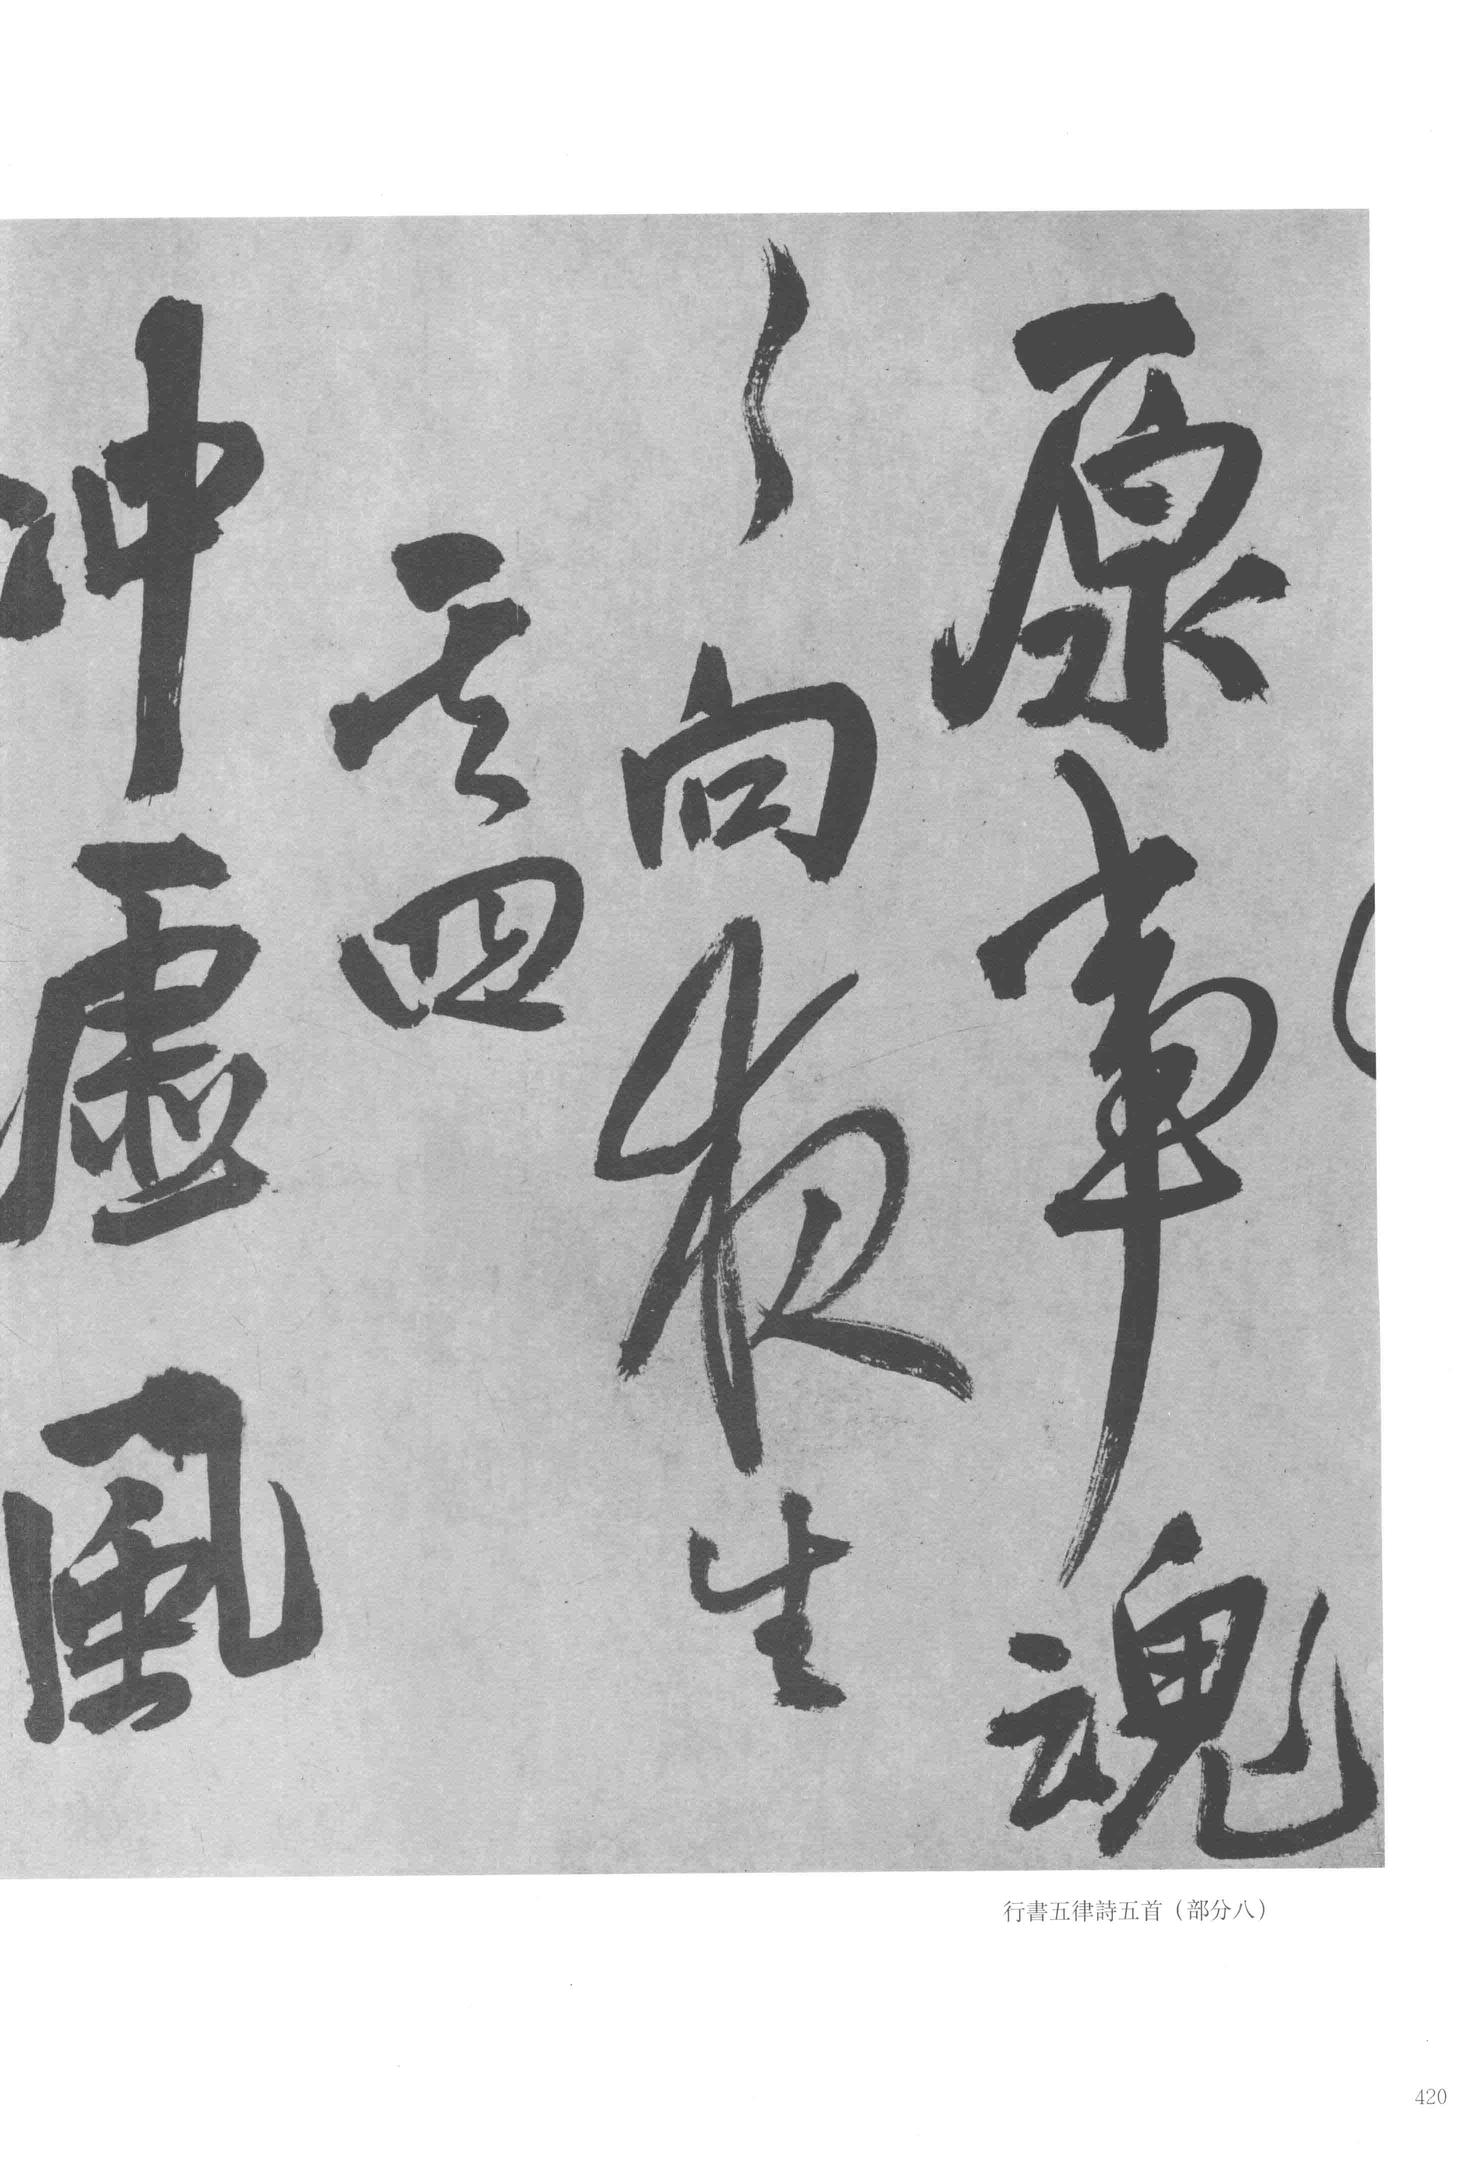 原事魂
々向夜生
其四
冲虛風
行書五律詩五首（部分八）
420